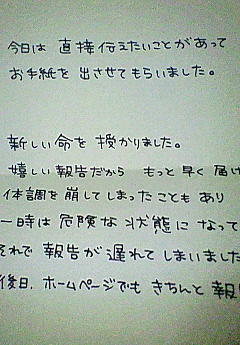 今日は 直接伝えたいことがあって
お手紙を 出させてもらいました。
新しい命を 授かりました。
嬉しい報告だから もっと早く 届け
体調を崩してしまったこともあり
一時は 危険な 状態に なって
それで 報告が 遅れてしまいました
後日、ホームページでも きちんと 報